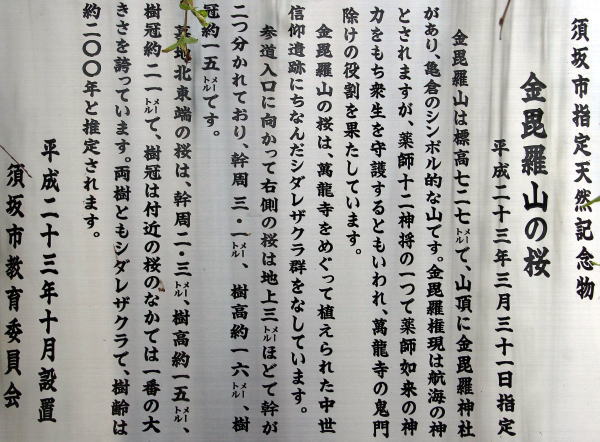 須坂市指定天然記念物
金毘羅山の桜
平成二十三年三月三十一日指定
金毘羅山は標高七二七㍍で、山頂に金毘羅神社
があり、亀倉のシンボル的な山です。金毘羅権現は航海の神
とされますが、薬師十二神将の一つで薬師如来の神
力をもち衆生を守護するともいわれ、萬龍寺の鬼門
除けの役割を果たしています。
金毘羅山の桜は、萬龍寺をめぐって植えられた中世
信仰遺跡にちなんだシダレザクラ群をなしています。
参道入口に向かって右側の桜は地上三㍍ほどで幹が
二つ分かれており、幹周三・一㍍、樹高約一六㍍、樹
冠約一五㍍です。
墓地北東端の桜は、幹周二・三㍍、樹高約一五㍍、
樹冠約二一㍍で、樹冠は付近の桜のなかでは一番の大
きさを誇っています。両樹ともシダレザクラで、樹齢は
約二〇〇年と推定されます。
平成二十三年十月設置
須坂市教育委員会